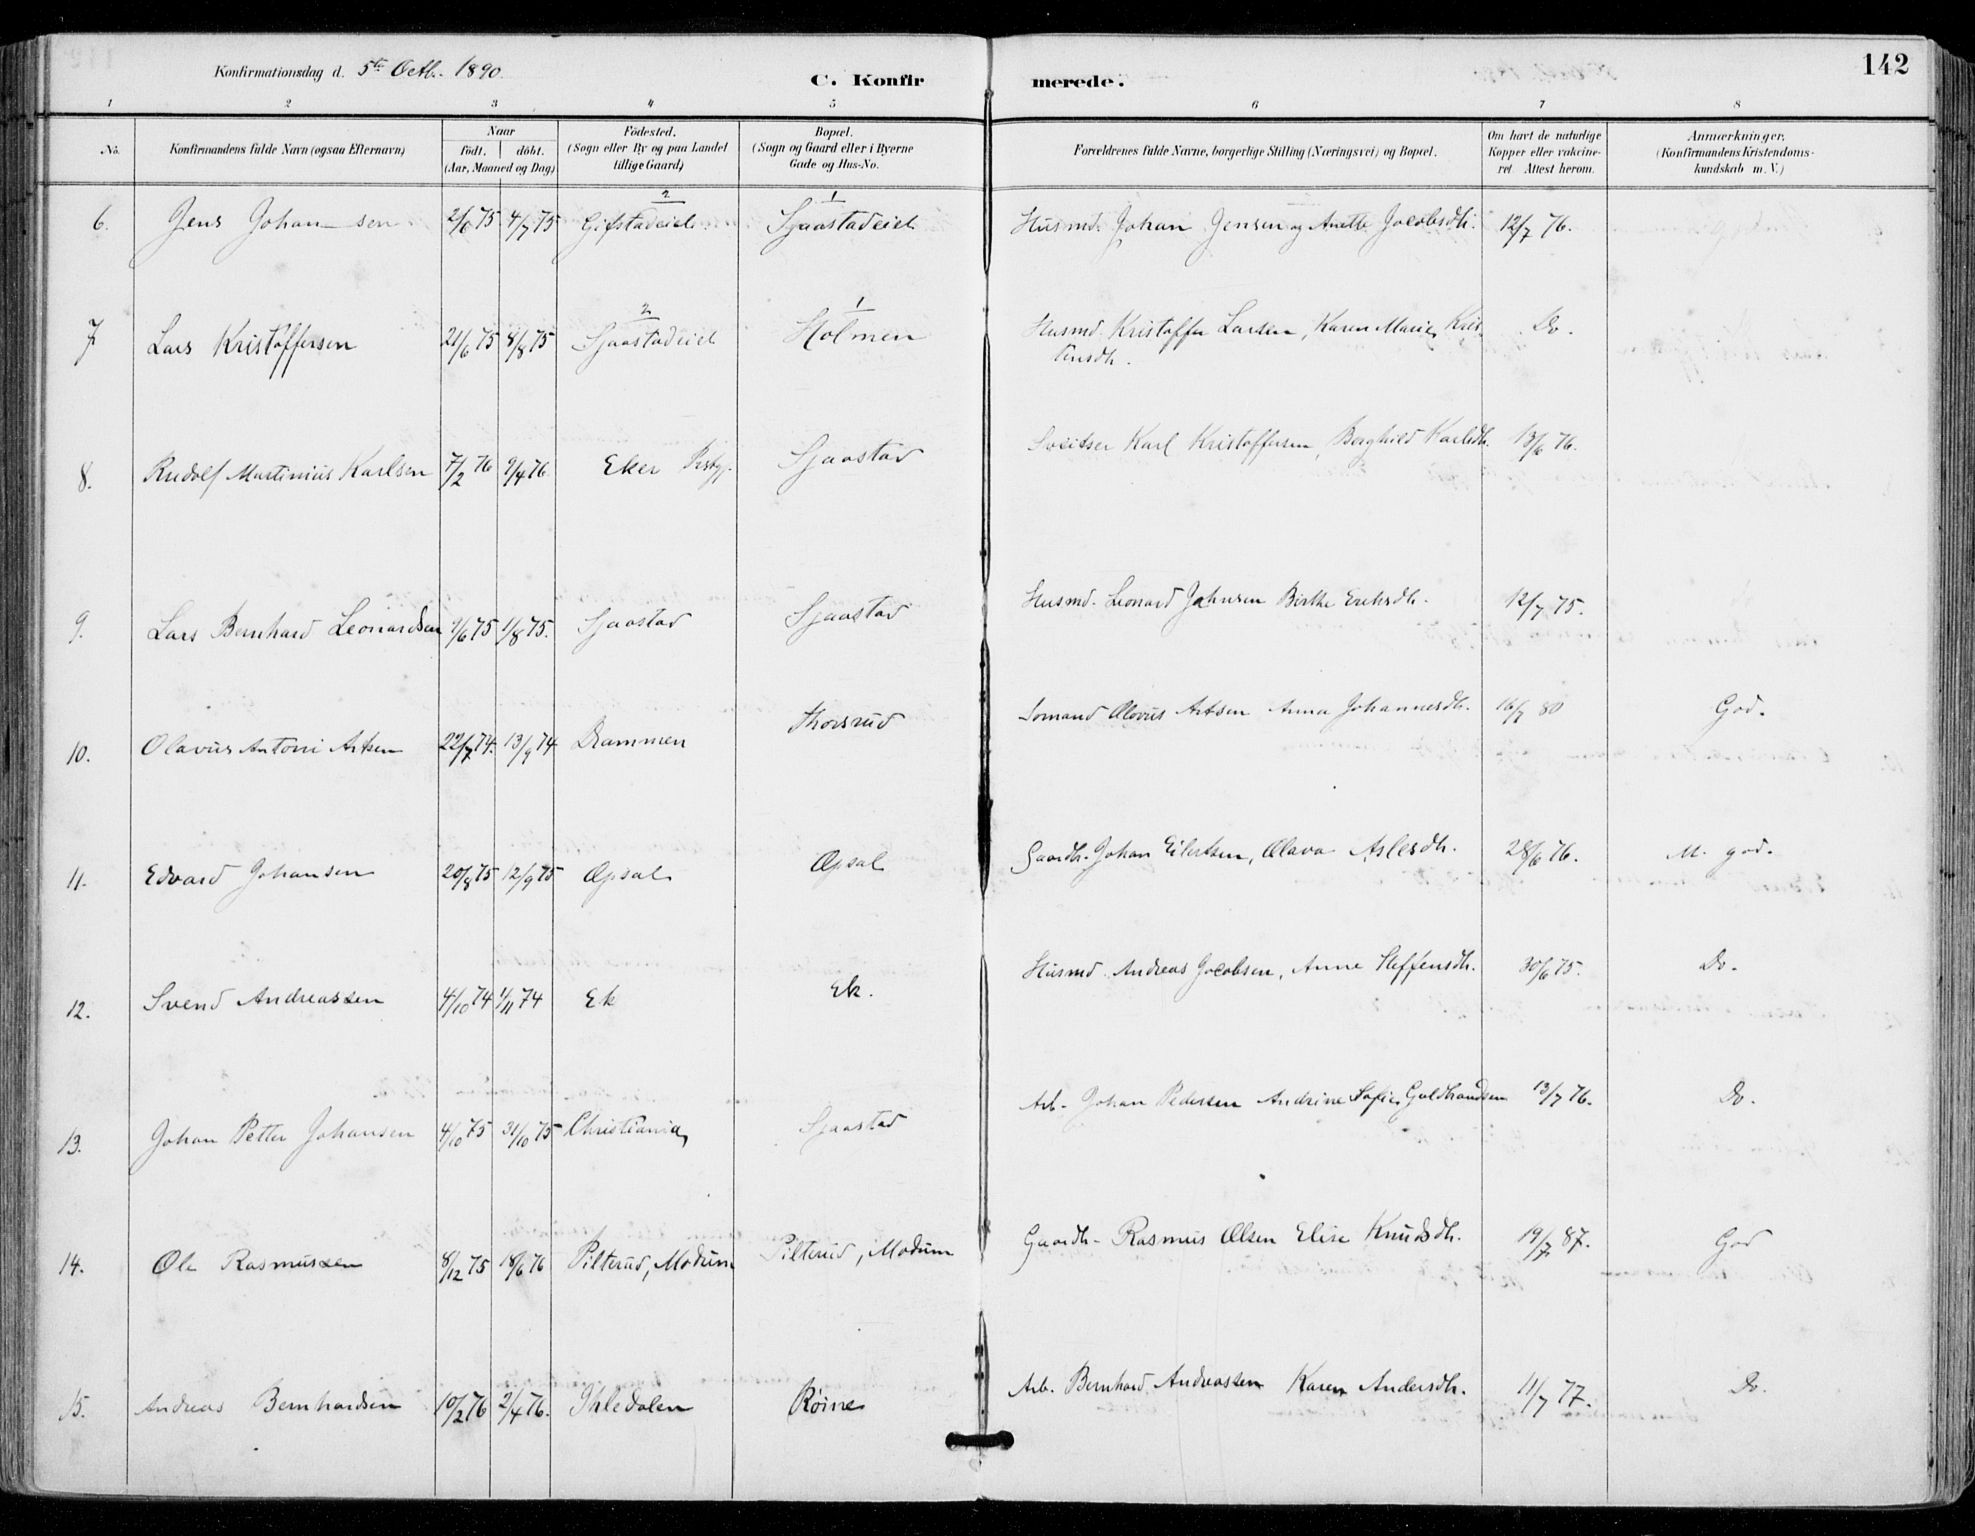 142
Konfirmationsdag d. 5te Octb. 1890.
C. Konfirmerede.
1 2 3 4 5 6 7 8
No. Konfirmandens fulde Navn (ogsaa Efternavn) Naar födt. döbt. (Aar, Maaned og Dag) Födested. (Sogn eller By og paa Landet tillige Gaard) Bopæl. (Sogn og Gaard eller i Byerne Gade og Hus-No. Forældrenes fulde Navne, borgerlige Stilling (Næringsvei) og Bopæl. Om havt de naturlige Kopper eller vakcineret. Attest herom. Anmærkninger. (Konfirmandens Kristendomskundskab m. V.)
6. Jens Johansen 2/6 75 4/7 75 2 Gifstadeiet 1 Sjaastadeiet Husmd. Johan Jensen og Anette Jacobsdtr. 12/7 76.
7 Lars Kristoffersen 21/6 75 8/8 75 2 Sjaastadeiet 1 Holmen Husmd. Kristoffer Larsen, Karen Marie Kris-
tensdtr. Do.
8. Rudolf Martinius Karlsen 7/2 76 9/4 76 Eker Sjaastad Sveitser Karl Kristoffersen, Berghild Karlsdtr. 13/6 76.
9. Lars Bernhard Leonardsen 1/6 75 1/8 75. Sjaastad Sjaastad Husmd. Leonard Johnsen Birthe Eriksdtr. 12/7 75.
10. Olavus Antoni Antsen 22/7 74. 13/9 74 Drammen Thorsrud Olavus Antsen Anna Johannesdtr. 16/7 80 God.
11. Edvard Johansen 20/8 75 12/9 75 Opsal Opsal Gaardb. Johan Eilertsen, Olava Aslesdtr. 28/6 76. M. god.
12. Svend Andreassen 4/10 74 1/11 74 Ek Ek. Husmd. Andreas Jacobsen, Anne Steffensdtr. 30/6 75. Do.
13. Johan Petter Johansen 4/10 75 31/10 75 Christiania Sjaastad Arb. Johan Pedersen Andrine Sofie Guldbrandsen 13/7 76. Do.
14. Ole Rasmussen 8/12 75 18/6 76 Pilterud, Modum Pilterud, Modum Gaardb. Rasmus Olsen Elise Knudsdtr. 19/7 87. God
15. Andreas Bernhardsen 10/2 76 2/4 76. Ihledalen Röine Arb. Bernhard Andreassen Karen Andersdtr. 11/7 77. Do.